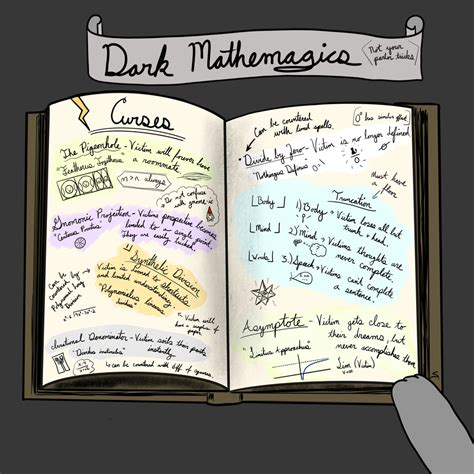 Dark Mathemagics
Not your
parlor tricks
Curses
The Pigeonhole - Victim will forever have
a roommate
n>n always
Do not confuse
with gnome-ic
Gnomonic Projection - Victims perspective becomes
limited to a single point
They are easily
Can be
countered by
Polynomial long
Division
Synthetic Division
Victim is
and limited understanding
"Polynomialus
Victim will
have a
of paper
Irrational Denominator - Victim soils their pants
instantly.
"Diarrhea
Can be countered with diff of squares.
Can be countered
with bond spells.
0° has similar effect
Divide by Zero - Victim is no longer defined
"Nothingus Definus"
Must have
a floor
Truncation
⌊Body⌋
1) Body - Victim loses all but
trunk + head.
⌊Mind⌋
2) Mind - Victims thoughts are
never complete
⌊Words⌋
3) Speech - Victim can't complete
a sentence.
Asymptote - Victim gets close to
their dreams, but
never accomplishes them
"Limitus Approachus"
Lim (Victim)